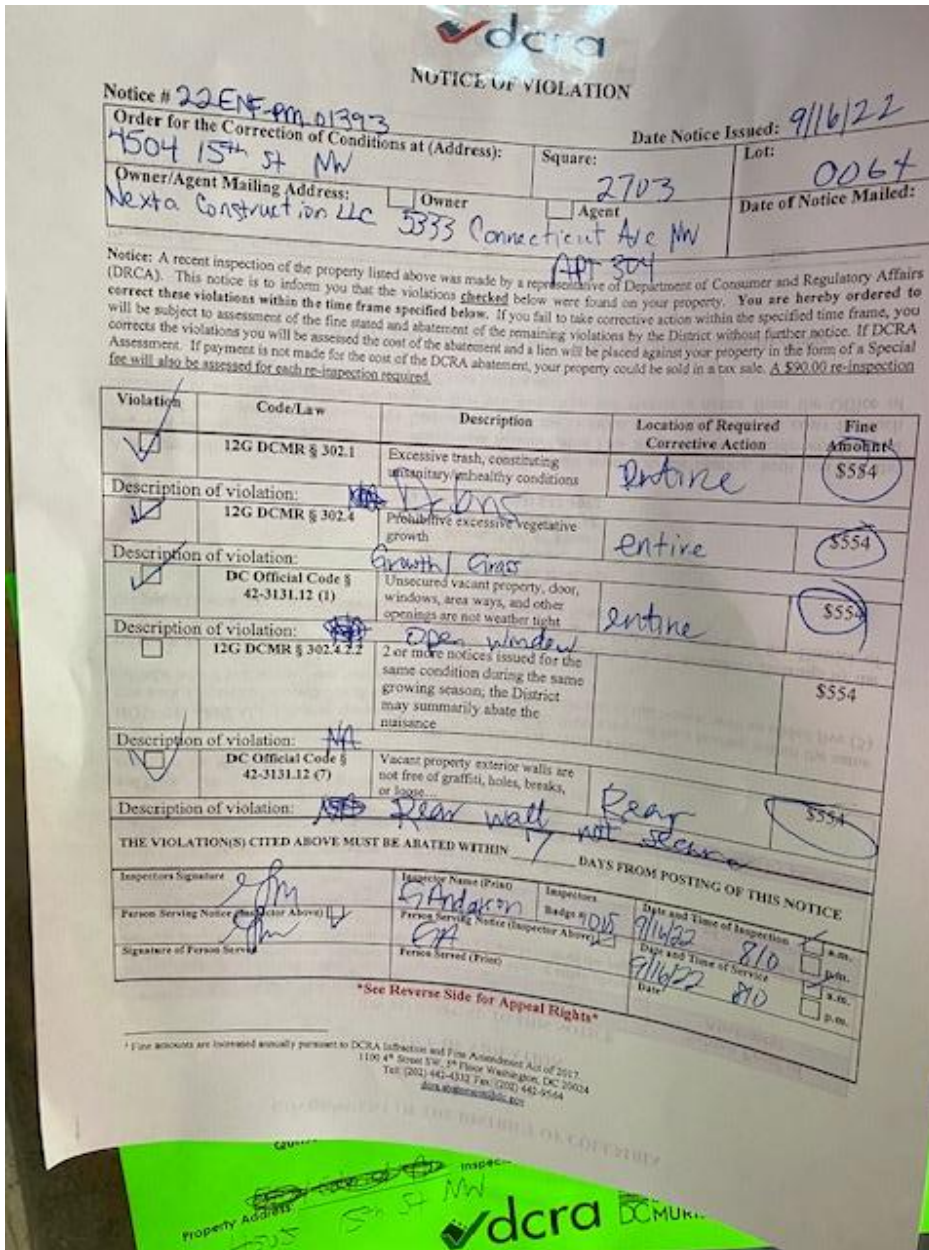 dcra
NOTICE OF VIOLATION
Notice # 22ENF-PM-01393
Date Notice Issued: 9/16/22
Order for the Correction of Conditions at (Address):
4504 15th St NW
Square:
2703
Lot:
0064
Owner/Agent Mailing Address:
Owner
Agent
Date of Notice Mailed:
Nexta Construction LLC 5333 Connecticut Ave NW
APT 304
Notice: A recent inspection of the property listed above was made by a representative of Department of Consumer and Regulatory Affairs
(DRCA). This notice is to inform you that the violations checked below were found on your property. You are hereby ordered to
correct these violations within the time frame specified below. If you fail to take corrective action within the specified time frame, you
will be subject to assessment of the fine stated and abatement of the remaining violations by the District without further notice. If DCRA
corrects the violations you will be assessed the cost of the abatement and a lien will be placed against your property in the form of a Special
Assessment. If payment is not made for the cost of the DCRA abatement, your property could be sold in a tax sale. A $90.00 re-inspection
fee will also be assessed for each re-inspection required.
Violation
Code/Law
Description
Location of Required
Corrective Action
Fine
Amount¹
12G DCMR § 302.1
Excessive trash, constituting
unsanitary/unhealthy conditions
Entire
$554
Description of violation: Debris
12G DCMR § 302.4
Prohibitive excessive vegetative
growth
entire
$554
Description of violation: Growth/Grass
DC Official Code §
42-3131.12 (1)
Unsecured vacant property, door,
windows, area ways, and other
openings are not weather tight
entire
$554
Description of violation: Open window
12G DCMR § 302.4.2.2
2 or more notices issued for the
same condition during the same
growing season; the District
may summarily abate the
nuisance
$554
Description of violation: NA
DC Official Code §
42-3131.12 (7)
Vacant property exterior walls are
not free of graffiti, holes, breaks,
or loose...
Rear
$554
Description of violation: Rear wall not secure
THE VIOLATION(S) CITED ABOVE MUST BE ABATED WITHIN 7 DAYS FROM POSTING OF THIS NOTICE
Inspectors Signature
Inspector Name (Print)
G Anderson
Inspectors
Badge # 1015
Date and Time of Inspection
9/16/22 810
a.m.
p.m.
Person Serving Notice (Inspector Above)
Person Serving Notice (Inspector Above)
GA
Date and Time of Service
9/16/22 810
a.m.
p.m.
Signature of Person Served
Person Served (Print)
Date
*See Reverse Side for Appeal Rights*
¹ Fine amounts are increased annually pursuant to DCRA Infraction and Fine Amendment Act of 2017.
1100 4th Street SW, 5th Floor Washington, DC 20024
Tel: (202) 442-4332 Fax: (202) 442-9564
Property Address
4505 15th St NW
dcra